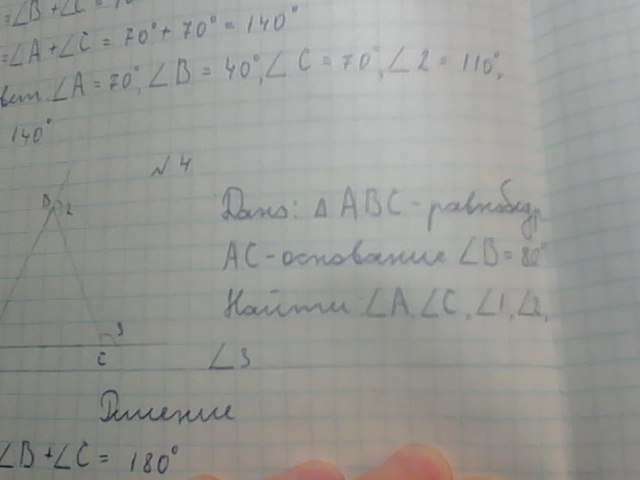 =∠B+∠C =
=∠A+∠C = 70°+70° = 140°
вет. ∠A = 70°, ∠B = 40°, ∠C = 70°, ∠2 = 110°,
140°
N 4
B 2
Дано: △ ABC - равнобедр
AC - основание ∠B = 80°
Найти ∠A, ∠C, ∠1, ∠2,
3
C
∠3
Решение
∠B+∠C = 180°